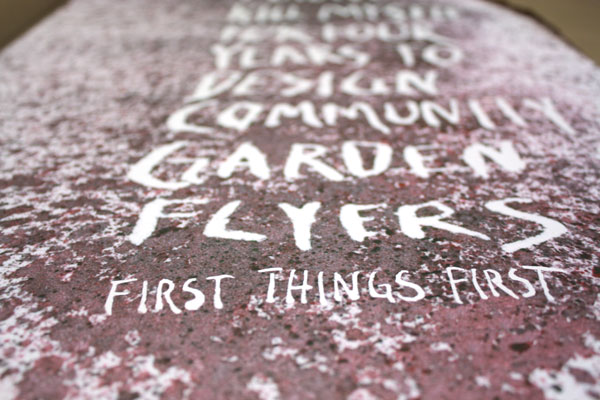 FOR FOUR
YEARS TO
DESIGN
COMMUNITY
GARDEN
FLYERS
FIRST THINGS FIRST